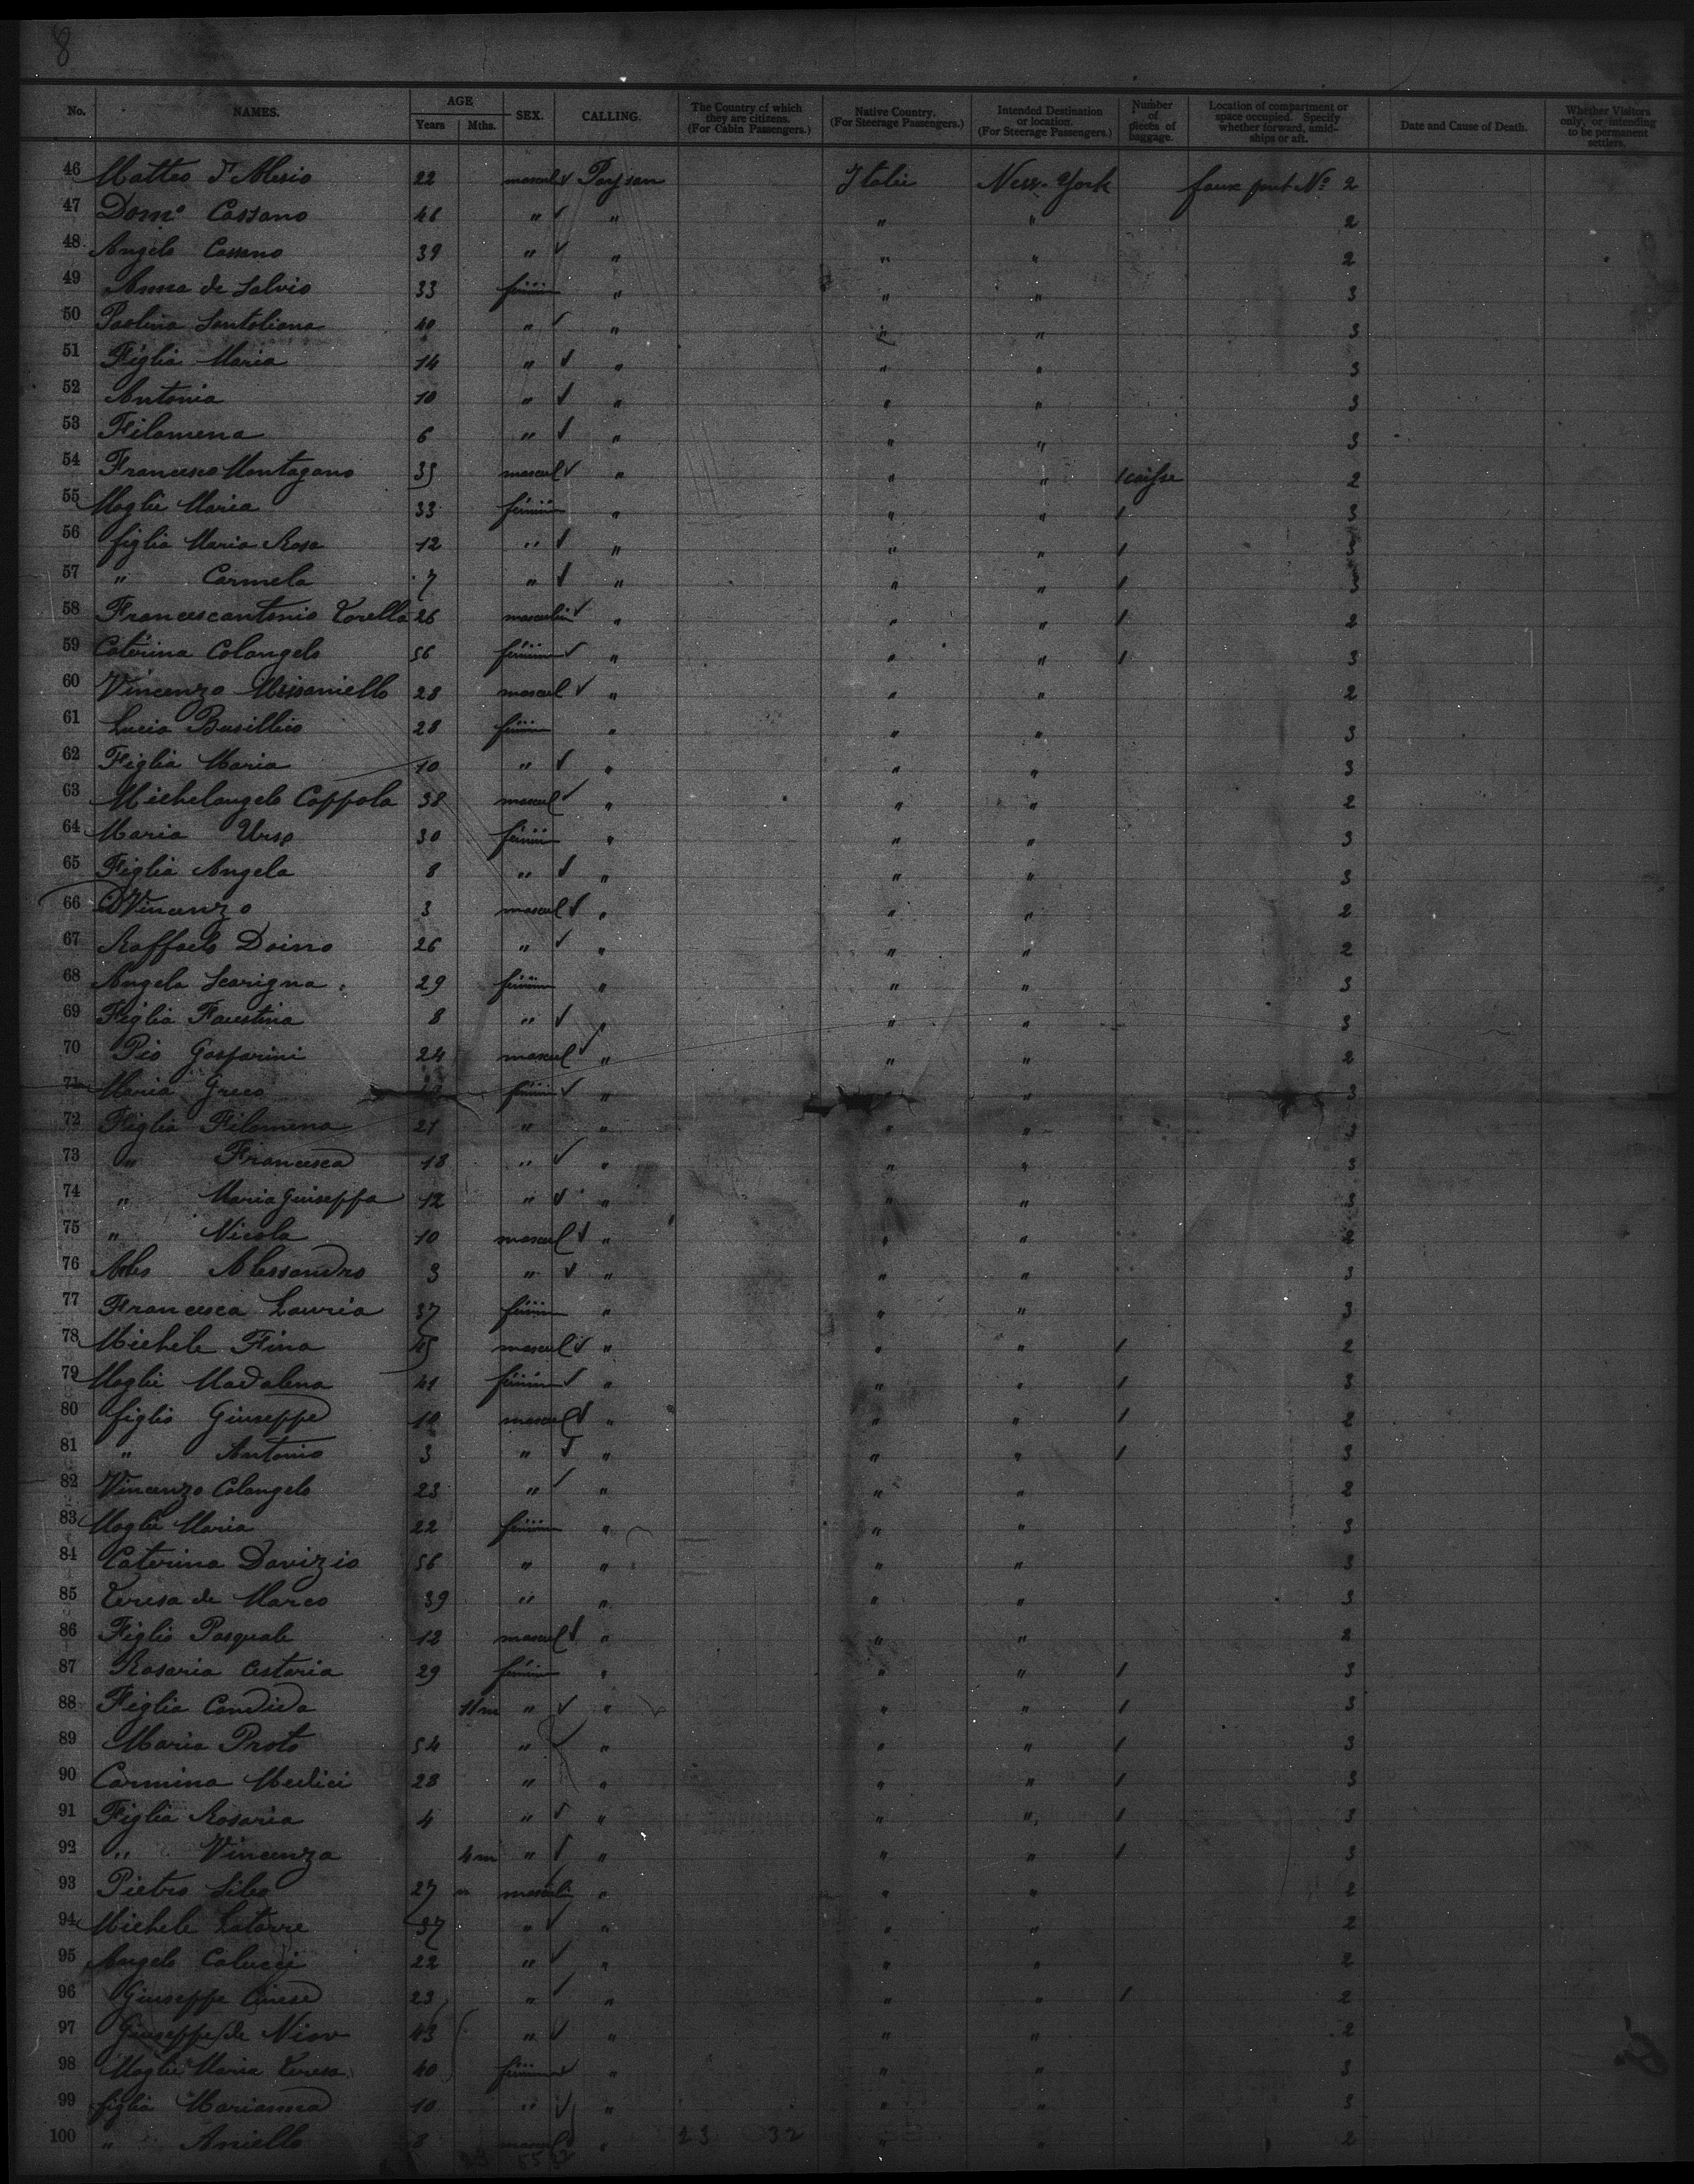 8
No. NAMES. AGE Years Mths. SEX. CALLING. The Country of which they are citizens. (For Cabin Passengers.) Native Country. (For Steerage Passengers.) Intended Destination or location. (For Steerage Passengers.) Number of pieces of baggage. Location of compartment or space occupied. Specify whether forward, amidships or aft. Date and Cause of Death. Whether Visitors only, or intending to be permanent settlers.
46 Matteo D'Alesio 22 mascul Paysan Italie New-York faux pont No 2
47 Domo Cassano 46 " " " " 2
48 Angelo Cassano 39 " " " " 2
49 Anna de Salvio 33 féminin " " " 3
50 Paolina Santoliana 40 " " " " 3
51 Figlia Maria 14 " " " " 3
52 Antonia 10 " " " " 3
53 Filomena 6 " " " " 3
54 Francesco Montagano 35 mascul " " " 1 caisse 2
55 Moglie Maria 33 féminin " " " 1 3
56 figlia Maria Rosa 12 " " " " 1 3
57 " Carmela 7 " " " " 1 3
58 Francescantonio Torella 26 masculin " " " 1 2
59 Caterina Colangelo 56 féminin " " " 1 3
60 Vincenzo 28 mascul " " " 2
61 Lucia Busillico 28 fémin " " " 3
62 Figlia Maria 10 " " " " 3
63 Michelangelo Coppola 38 mascul " " " 2
64 Maria Urso 30 fémin " " " 3
65 Figlia Angela 8 " " " " 3
66 Vincenzo 3 mascul " " " 2
67 Raffaele Doino 26 " " " " 2
68 Angela Scarigna 29 fémin " " " 3
69 Figlia Faustina 8 " " " " 3
70 Pio Gasparini 24 mascul " " " 2
71 Maria Greco fémin " " " 3
72 Figlia Filomena 21 " " " " 3
73 " Francesca 18 " " " " 3
74 " Maria Giuseppa 12 " " " " 3
75 " Nicola 10 mascul " " " 2
76 Alessandro 3 " " " " 3
77 Francesca Lauria 37 fémin " " " 3
78 Michele Fina 45 mascul " " " 1 2
79 Moglie Madalena 41 féminin " " " 1 3
80 figlio Giuseppe 10 mascul " " " 1 2
81 " Antonio 3 " " " " 1 3
82 Vincenzo Colangelo 23 " " " " 2
83 Moglie Maria 22 féminin " " " 3
84 Caterina Davizio 56 " " " " 3
85 Teresa de Marco 39 " " " " 3
86 Figlio Pasquale 12 mascul " " " 2
87 Rosaria Cestaria 29 fémin " " " 1 3
88 Figlia Candida 11 m " " " " 1 3
89 Maria Proto 54 " " " " 1 3
90 Carmina Medici 28 " " " " 1 3
91 Figlia Rosaria 4 " " " " 1 3
92 " Vincenza 4 m " " " " 1 3
93 Pietro Sileo 27 " masculin " " " 2
94 Michele Latorre 37 " " " " 2
95 Angelo Calucci 22 " " " " 2
96 Giuseppe Cinese 23 " " " " 1 2
97 Giuseppe de 43 " " " " 2
98 Moglie Maria Teresa 40 fémin " " " 3
99 figlia Marianna 10 " " " " 3
100 " Aniello 8 mascul " 23 32 " " 2